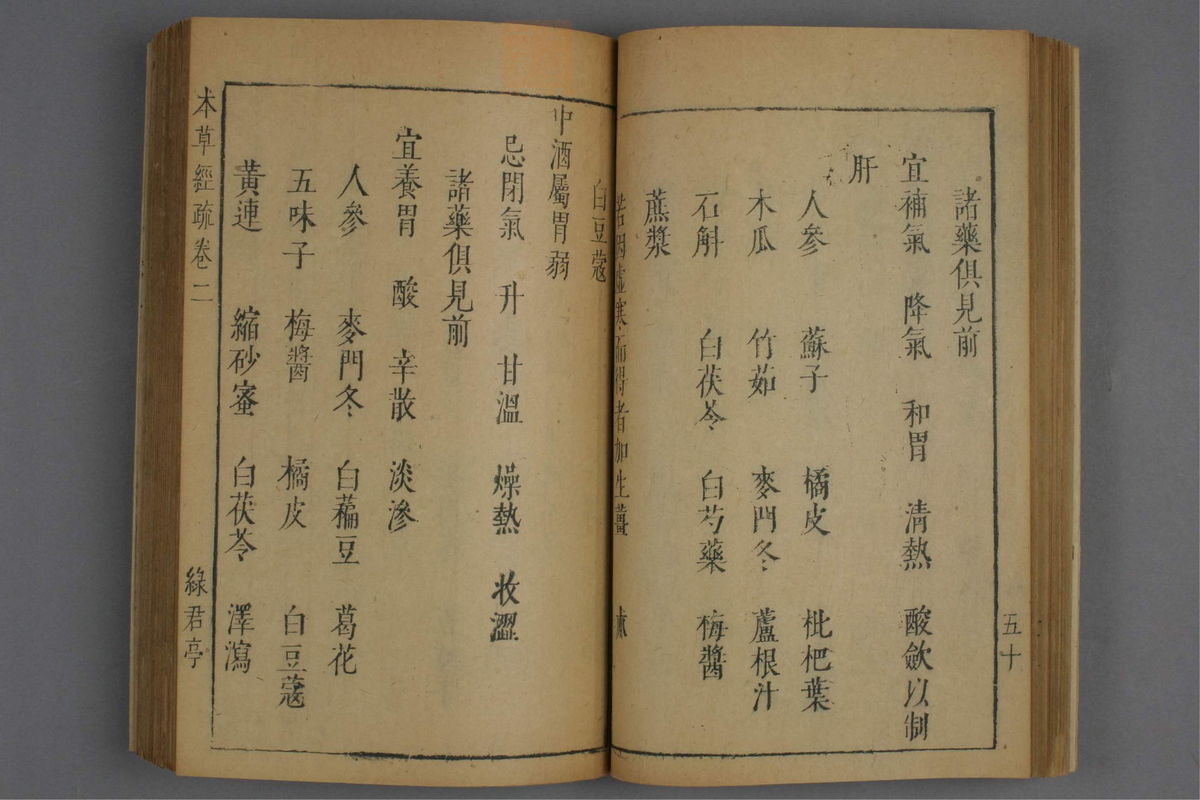 五十
諸藥俱見前
宜補氣 降氣 和胃 清熱 酸斂以制
肝
人參 蘇子 橘皮 枇杷葉
木瓜 竹茹 麥門冬 蘆根汁
石斛 白茯苓 白芍藥 梅醬
蔗漿
若因虛寒而得者加生薑
白豆蔻
中酒屬胃弱
忌閉氣 升 甘溫 燥熱 收澀
諸藥俱見前
宜養胃 酸 辛散 淡滲
人參 麥門冬 白藊豆 葛花
五味子 梅醬 橘皮 白豆蔻
黃連 縮砂蜜 白茯苓 澤瀉
本草經疏卷二 綠君亭